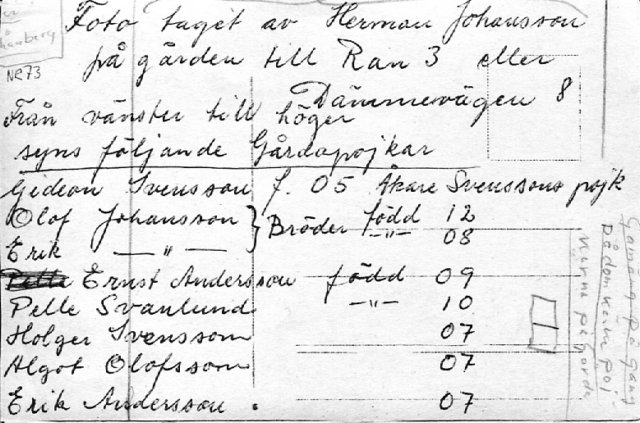 Foto taget av Herman Johansson
på gården till Ran 3 eller
Dämmevägen 8
Från vänster till höger
syns följande Gårdapojkar
Gideon Svensson f. 05 Åkare Svenssons pojk
Olof Johansson } Bröder född 12
Erik —"— —"— 08
Pelle Ernst Andersson född 09
Pelle Svanlund —"— 10
Holger Svensson 07
Algot Olofsson 07
Erik Andersson . 07
NR 73
på gång